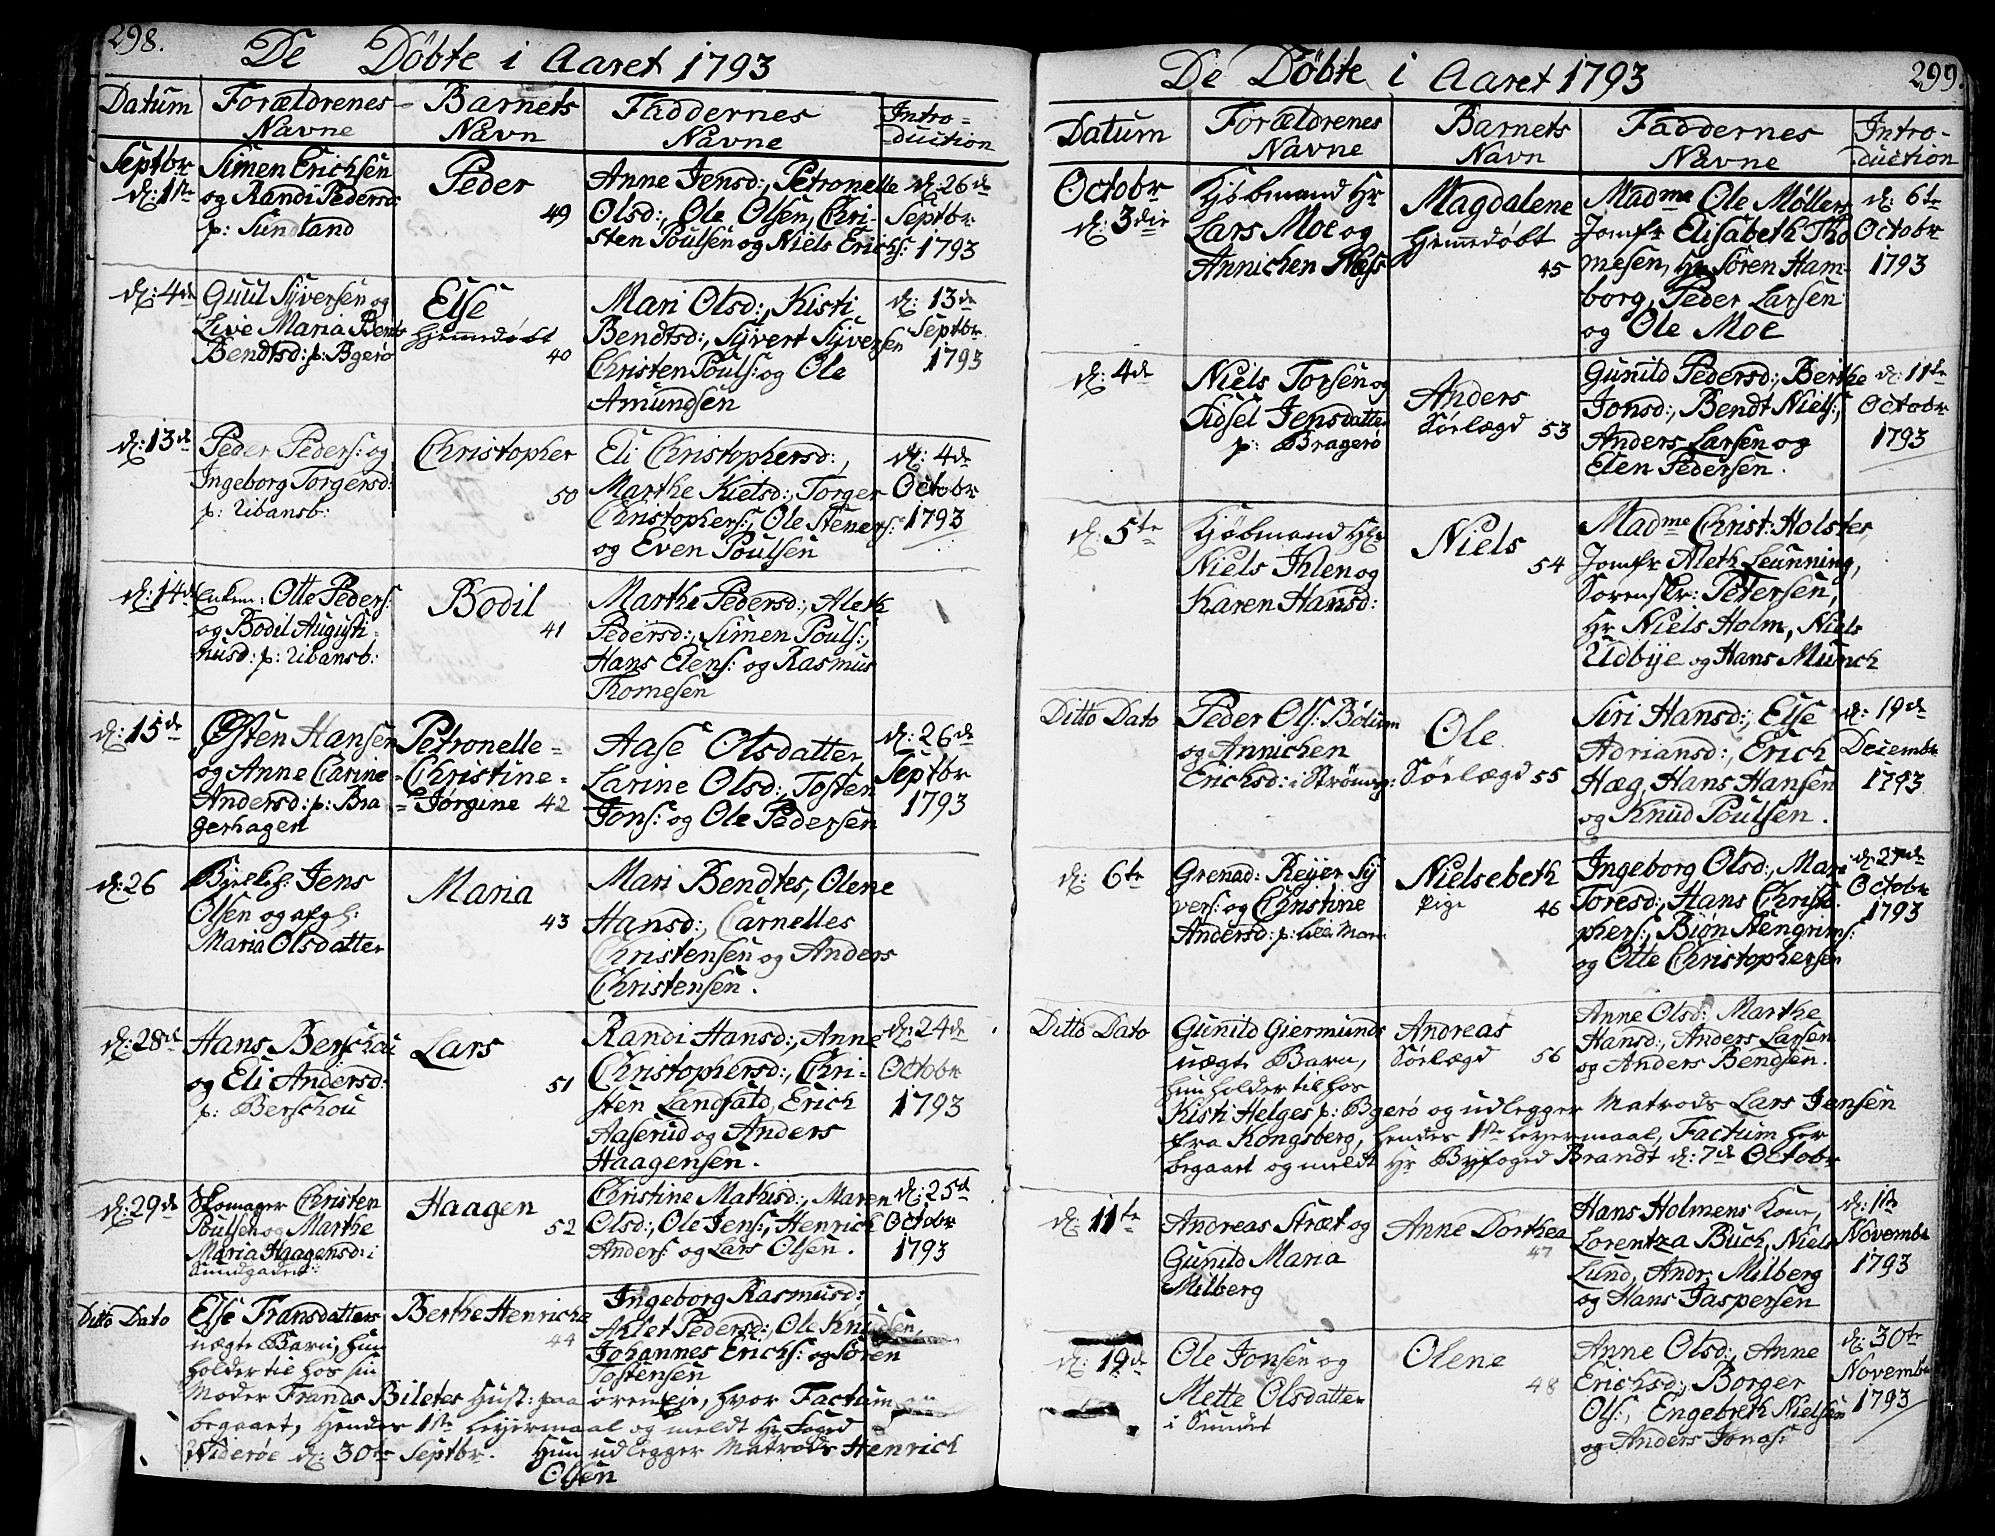 298.
De Döbte i Aaret 1793
Datum
Forældrenes Navne
Barnets Navn
Faddernes Navne
Intro=duction
Septbr d: 1ste
Simen Erichsen
og Randi Pedersd:
p: Sundland
Peder
49
Anne Jensd:, Petronelle
Olsd:, Ole Olsen, Chri-
sten Poulsen og Niels Erichs:
d: 26de
Septbr
1793
d: 4de
Guul Syversen og
Live Maria Bents
Bendtsd: p: Bgerø
Else
hjemmedöbt
40
Mari Olsd:, Kisti
Bendtsd:, Syvert Syversen
Christen Pouls: og Ole
Amundsen
d: 13de
Septbr
1793
d: 13de
Peder Peders: og
Ingeborg Torgersd:
p: Ubansb:
Christopher
50
Eli Christophersd:,
Marthe Kielsd:, Torger
Christophers:, Ole Steners:
og Even Poulsen
d: 4de
Octobr
1793
d: 14de
Otte Peders:
og Bodil Augusti-
nusd: p: Ubansb:
Bodil
41
Marthe Pedersd:, Aleth
Pedersd:, Simen Pouls:,
Hans Elens: og Rasmus
Thomesen
d: 15de
Østen Hansen
og Anne Carine
Andersd: p: Bra
gerhagen
Petronelle=
=Christine=
=Jørgine 42
Aase Olsdatter
Larine Olsd:, Tosten
Jons: og Ole Pedersen
d: 26de
Septbr
1793
d: 26
Jens
Olsen og afg:
Maria Olsdatter
Maria
43
Mari Bendtes, Olene
Hansd:, Carnelles
Christensen og Anders
Christensen.
d: 28de
Hans Berschou
og Eli Andersd:
p: Berschou
Lars
51
Randi Hansd:, Anne
Christophersd:, Chri-
sten Landfald, Erich
Aaserud og Anders
Haagensen.
d: 24de
Octobr
1793
d: 29de
Skomager Christen
Poulsen og Marthe
Maria Haagensd: i
Sundgadet:
Haagen
52
Christine Mathisd:, Maren
Olsd:, Ole Jens:, Henrich
Anders: og Lars Olsen.
d: 25de
Octobr
1793
Ditto Dato
Else Fransdatters
uægte Barn, hun
holder til hos sin
Moder Frands Biletes Hust: paa ørenEje, hvor Factum
begaaet, hendes 1ste Leyermaal og meldt Hr Foged
Widerøe d: 30te Septbr. Hun udlegger Matrods Henrich
Olsen
Berthe Henricha
44
Ingeborg Rasmusd:,
Arlet Pedersd:, Ole Knudsen
Johannes Erichs: og Sören
Tostensen
299.
De Döbte i Aaret 1793
Datum
Forældrenes Navne
Barnets Navn
Faddernes Navne
Intro-duction
Octobr
d: 3die
Kjöbmand Hr
Lars Moe og
Annichen Næss
Magdalene
hjemmedöbt
45
Madme Ole Møllers
Jomfr Elisabeth Tho
mesen, Hr Sören Ham-
borg, Peder Larsen
og Ole Moe
d: 6te
Octobr
1793
d: 4de
Niels Torsen og
Sidsel Jensdatter
p: Bragerø
Anders
Söelægd 53
Gunild Pedersd:, Berthe
Jonsd:, Bendt Niels:,
Anders Larsen og
Elen Pedersen.
d: 11te
Octobr
1793
d: 5te
Kjöbmand Hr
Niels Ihlen og
Karen Hansd:
Niels
54
Madme Christ: Holster,
Jomfr Aleth Leunning,
Sorenskr: Petersen,
Hr Niels Holm, Niels
Udbye og Hans Munch
Ditto Dato
Peder Ols: Bölium
og Annichen
Erichsd: i Strömsg:
Ole
Söelægd 55
Siri Hansd:, Else
Adriansd:, Erich
Hæg, Hans Hansen
og Knud Poulsen.
d: 19de
Decembr
1793
d: 6te
Grenad: Reyer Sy
vers: og Christine
Andersd: p: Lille Moen
Nielsebeth
Pige 46
Ingeborg Olsd:, Mari
Toresd:, Hans Christo
phers:, Biøn Stengrims:
og Otte Christophersen
d: 27de
Octobr
1793
Ditto Dato
Gunild Giermunds
uægte Barn,
hun holder til hos
Kisti Helges p: Bgerø og udlegger Matrods Lars Jensen
fra Kongsberg, hendes 1ste Leyermaal, Factum her
begaaet og meldt Hr Byfoged Brandt d: 7de Octobr
Andreas
Söelægd 56
Anne Olsd: Marthe
Hansd:, Anders Larsen
og Anders Bendsen.
d: 11te
Andreas Stræt og
Gunild Maria
Milberg
Anne Dorthea
47
Hans Holmens Kone,
Lorentza Buch, Niels
Lund, Andr: Milberg
og Hans Jaspersen
d: 1ste
Novembr
1793
d: 19de
Ole Jonsen og
Mette Olsdatter
i Sundet
Olene
48
Anne Olsd:, Anne
Erichsd:, Borger
Ols:, Engebreth Nielsen
og Anders Jonas:
d: 30te
Novembr
1793